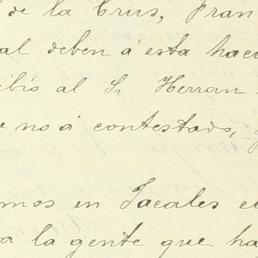 de la Crus, Fran
al deben á esta hac
ibió al Sr Herran
e no á contestado,
mos en Tacales e
a la gente que ha